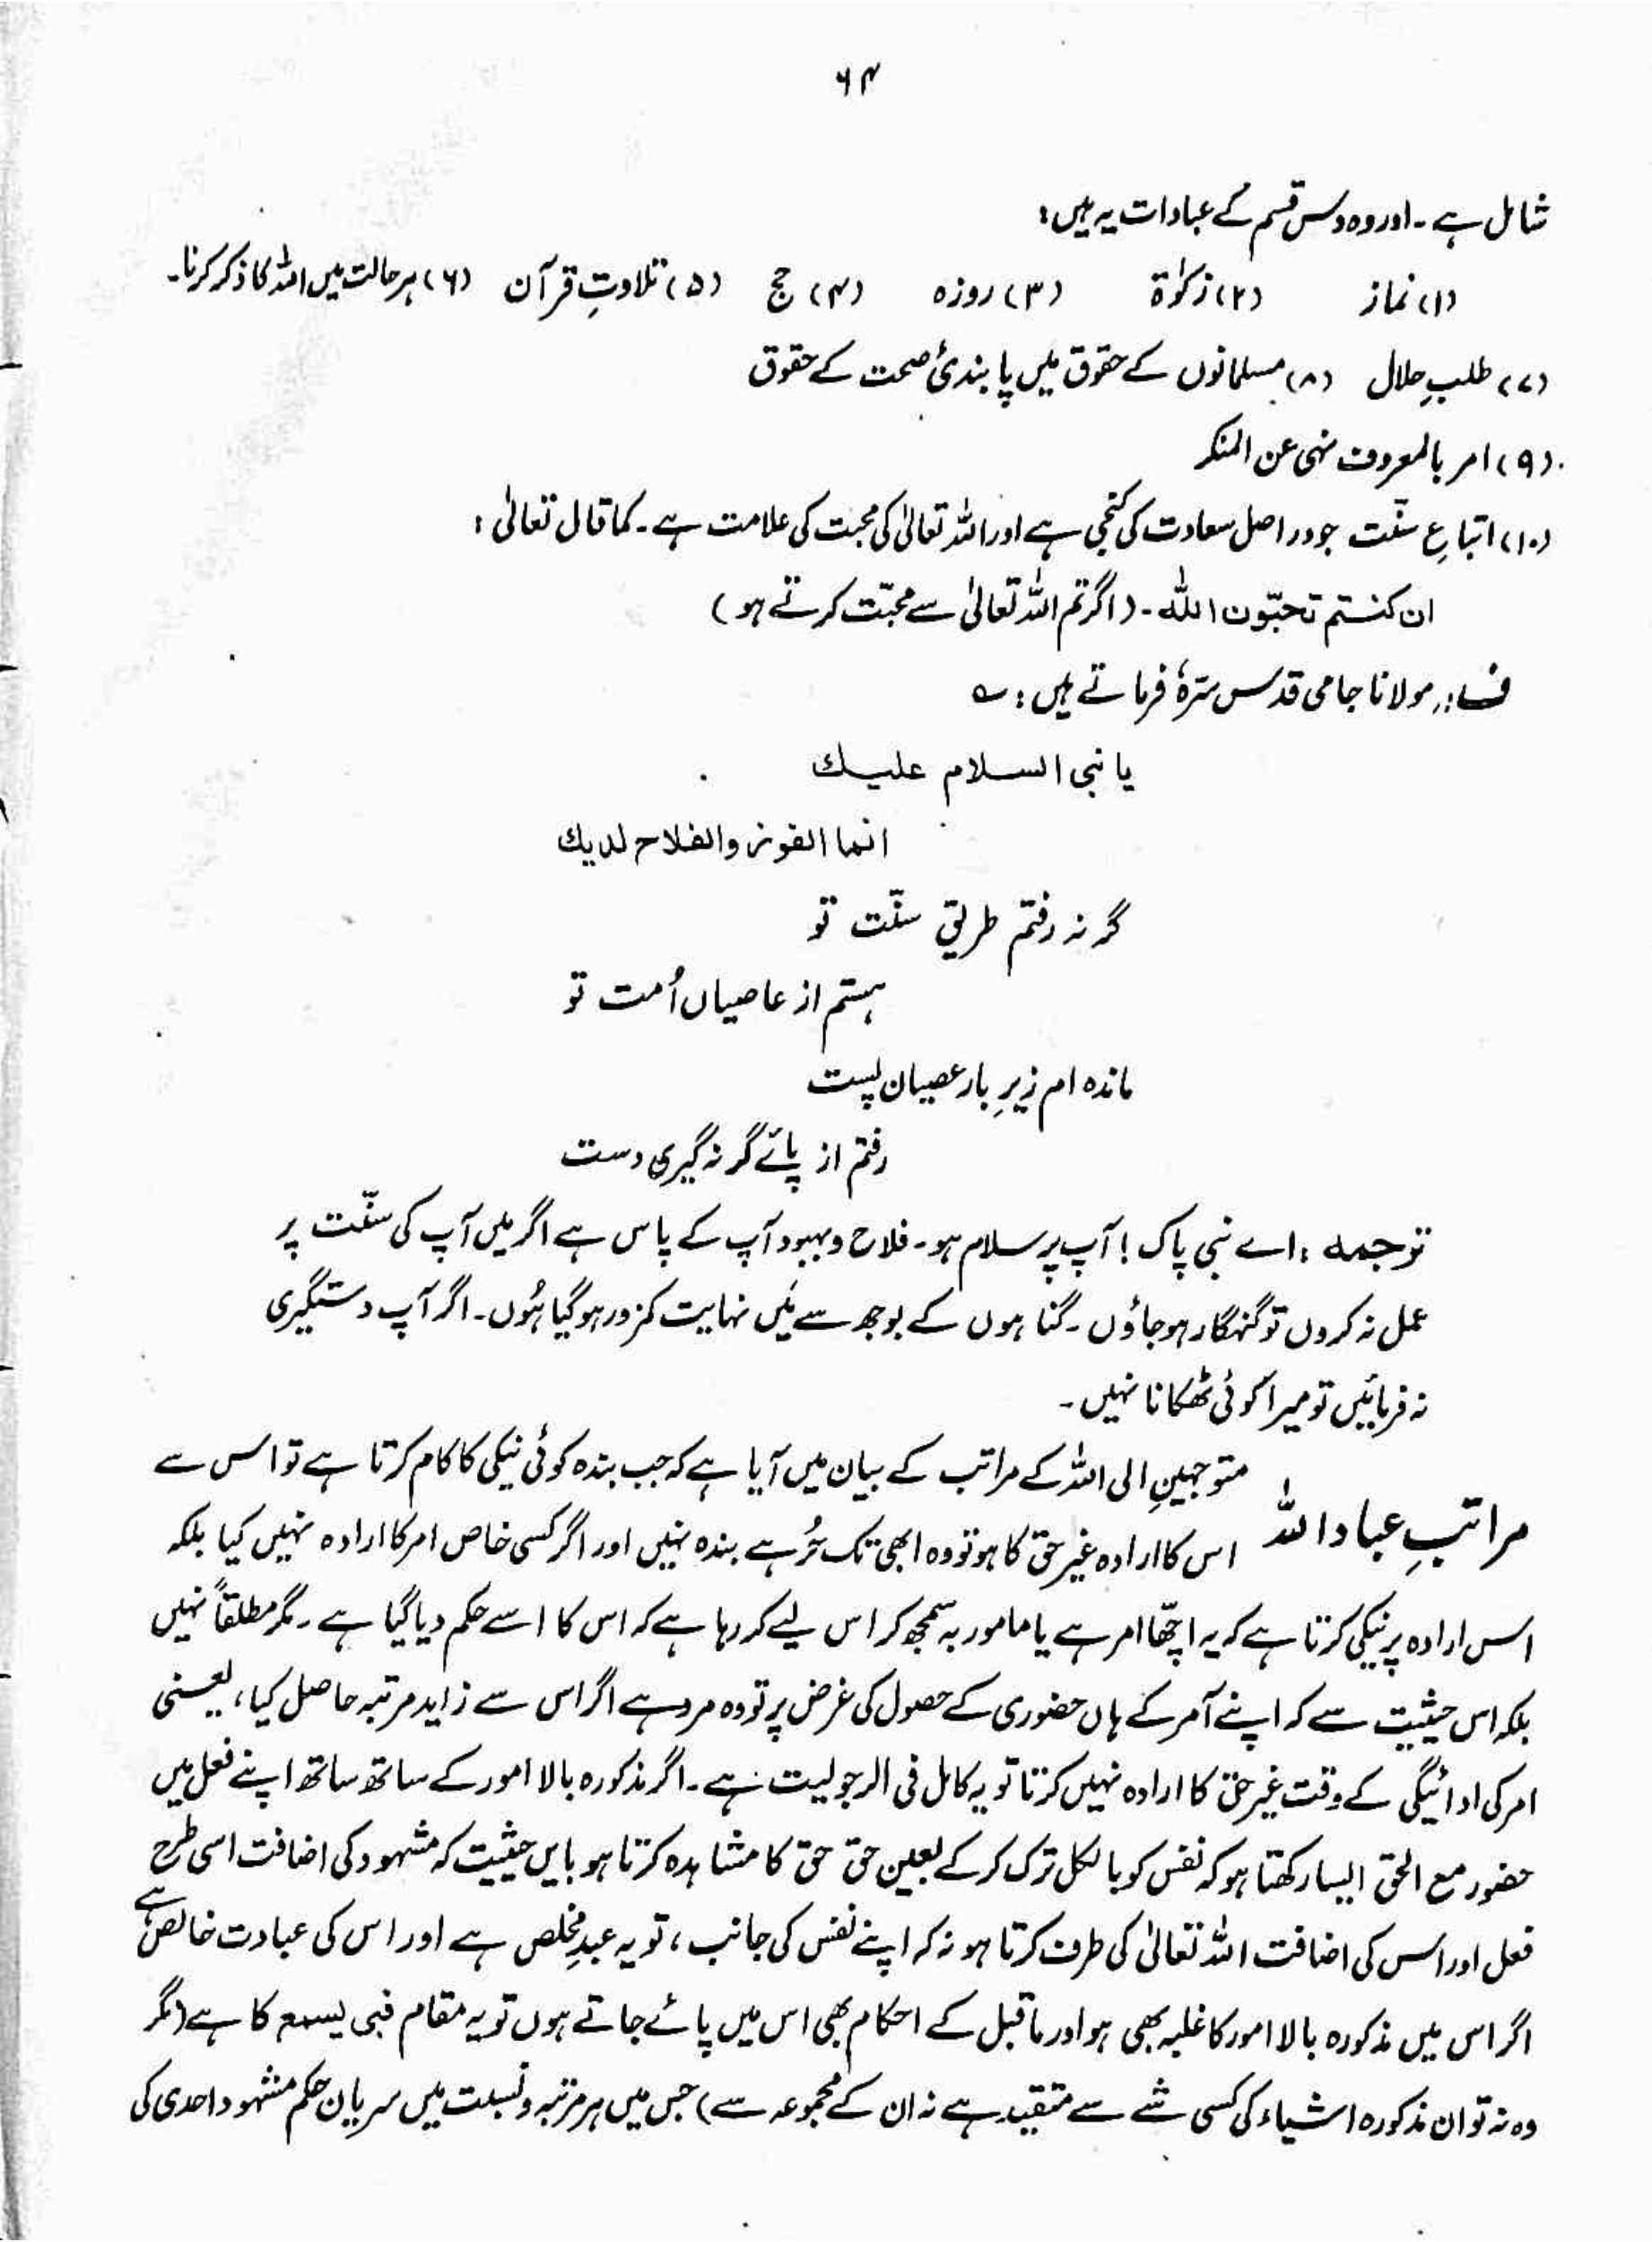 ۶۴
شامل ہے۔ اور وہ دس قسم کے عبادات یہ ہیں:
(۱) نماز (۲) زکوٰۃ (۳) روزہ (۴) حج (۵) تلاوتِ قرآن (۶) ہر حالت میں اللہ کا ذکر کرنا۔
(۷) طلبِ حلال (۸) مسلمانوں کے حقوق میں پابندیٔ صحت کے حقوق
(۹) امر بالمعروف نہی عن المنکر
(۱۰) اتباعِ سنّت جو دراصل سعادت کی کنجی ہے اور اللہ تعالیٰ کی محبت کی علامت ہے۔ کما قال تعالیٰ:
ان کنتم تحبّون اللہ۔ (اگر تم اللہ تعالیٰ سے محبّت کرتے ہو)
ف: مولانا جامی قدس سرّہٗ فرماتے ہیں: ؎
یا نبی السلام علیك
انما الفوز والفلاح لدیك
گر نہ رفتم طریقِ سنّت تو
ہستم از عاصیاں اُمت تو
ماندہ ام زیرِ بار عصیان پست
رفتم از پائے گر نہ گیری دست
ترجمہ: اے نبی پاک! آپ پر سلام ہو۔ فلاح و بہبود آپ کے پاس ہے اگر میں آپ کی سنّت پر
عمل نہ کروں تو گنہگار ہو جاؤں۔ گناہوں کے بوجھ سے میَں نہایت کمزور ہو گیا ہُوں۔ اگر آپ دستگیری
نہ فرمائیں تو میرا کوئی ٹھکانا نہیں۔
متوجہینِ الی اللہ کے مراتب کے بیان میں آیا ہے کہ جب بندہ کوئی نیکی کا کام کرتا ہے تو اس سے
مراتبِ عباد اللہ
اس کا ارادہ غیر حق کا ہو تو وہ ابھی تک حُر ہے بندہ نہیں اور اگر کسی خاص امر کا ارادہ نہیں کیا بلکہ
اس ارادہ پر نیکی کرتا ہے کہ یہ اچھّا امر ہے یا مامور بہ سمجھ کر اس لیے کر رہا ہے کہ اس کا اسے حکم دیا گیا ہے۔ مگر مطلقاً نہیں
بلکہ اس حیثیت سے کہ اپنے آمر کے ہاں حضوری کے حصول کی غرض پر تو وہ مرد ہے اگر اس سے زاید مرتبہ حاصل کیا، یعنی
امر کی ادائیگی کے وقت غیر حق کا ارادہ نہیں کرتا تو یہ کامل فی الرجولیت ہے۔ اگر مذکورہ بالا امور کے ساتھ ساتھ اپنے فعل میں
حضور مع الحق ایسا رکھتا ہو کہ نفس کو بالکل ترک کر کے بعین حق حق کا مشاہدہ کرتا ہو بایں حیثیت کہ مشہود کی اضافت اسی طرح
فعل اور اس کی اضافت اللہ تعالیٰ کی طرف کرتا ہو نہ کہ اپنے نفس کی جانب، تو یہ عبدِ مخلص ہے اور اس کی عبادت خالص ہے
اگر اس میں مذکورہ بالا امور کا غلبہ بھی ہو اور ماقبل کے احکام بھی اس میں پائے جاتے ہوں تو یہ مقام فبی یسمع کا ہے (مگر
وہ نہ تو ان مذکورہ اشیاء کی کسی شے سے متقید ہے نہ ان کے مجموعہ سے) جس میں ہر مرتبہ و نسبت میں سریان حکم مشہود احدی کی